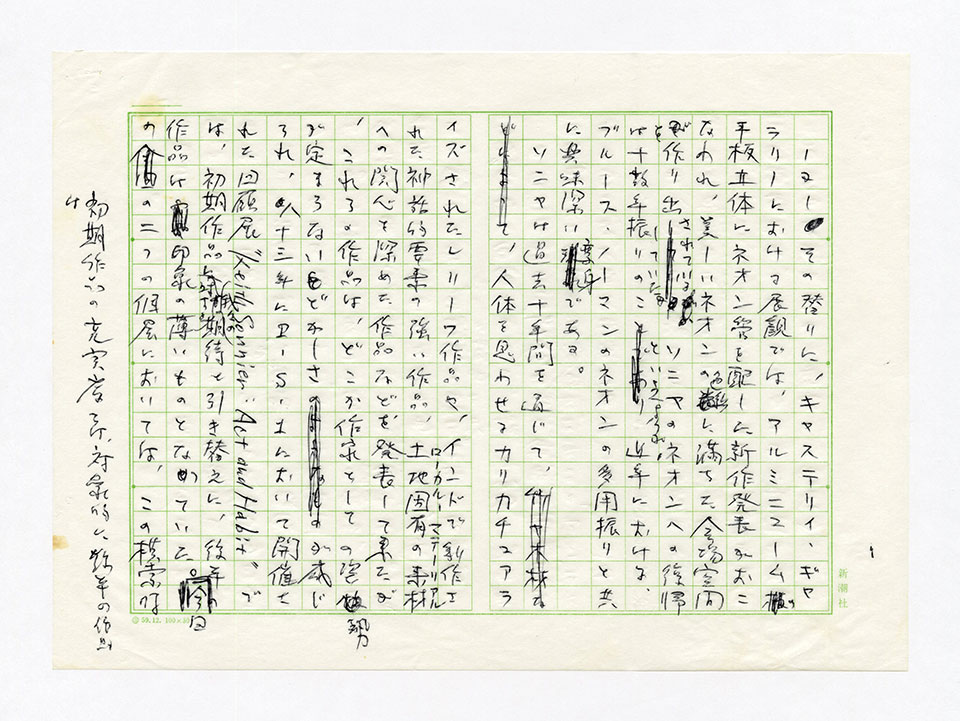 その替りに、キャステリィ、ギャ
ラリーにおける展観では、アルミニューム
平板立体にネオン管を配した新作発表がおこ
なわれ、美しいネオンの色に満ちた会場空間
を作り出していた。ソニヤのネオンへの復帰
は十数年振りのこと 近年における、
ブルース・ノーマンのネオンの多用振りと共
に興味深い である。
ソニヤは過去十年間を通じて、
て、人体を思わせるカリカチュアラ
イズされたレリーフ作品や、インドで新作さ
れた神話的要素の強い作品、土地固有の素材
ローカル・マテリアル
への関心を深めた作品などを発表して来たが
、これらの作品は、どこか作家としての姿勢
が定まらないもどかしさ が感じ
られ、八十三年にP・S・1において開催さ
れた回顧展 "Keith Sonnier: Act and Habit" で
は、初期作品 期待と引き替えに、後年の
作品は 印象の薄いものとなっていた。今回
の二つの個展においては、この模索時
初期作品の充実度 対象的に 後年の作品
は
新潮社
59.12.